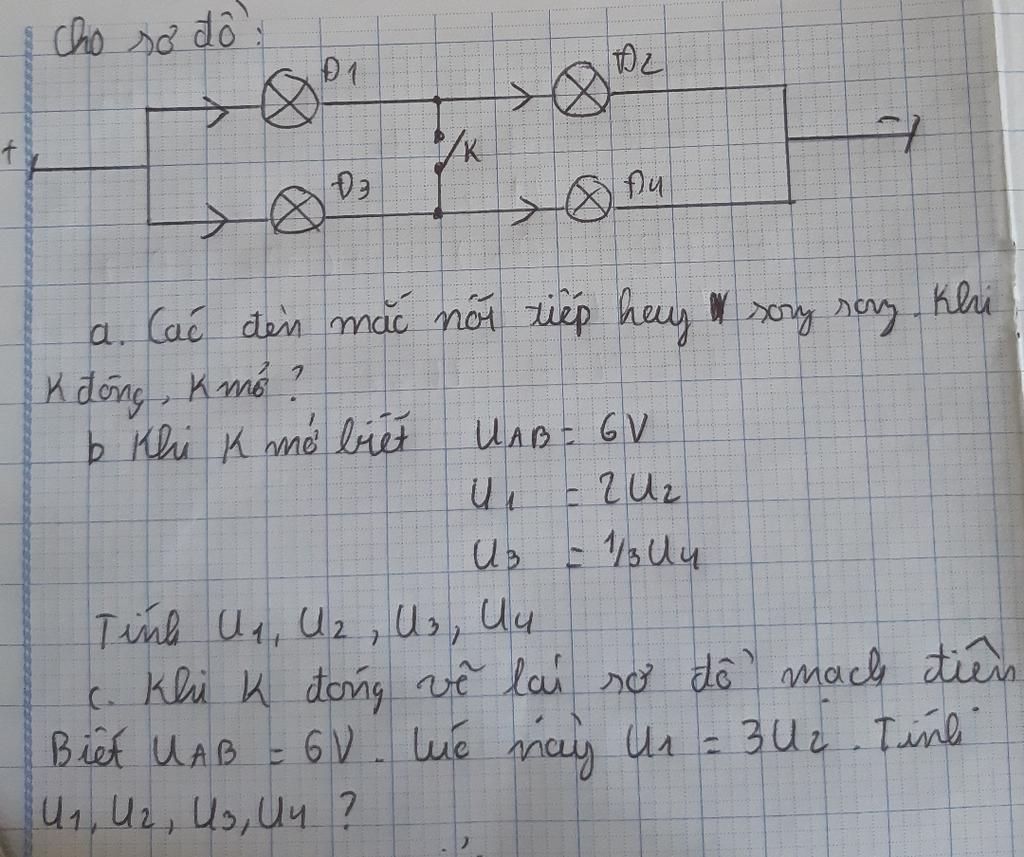 Cho sơ đồ:
Đ1
Đ2
+
K
-
Đ3
Đ4
a. Các đèn mắc nối tiếp hay song song. Khi
K đóng, K mở?
b Khi K mở biết UAB = 6V
U1 = 2U2
U3 = 1/3U4
Tính U1, U2, U3, U4
c. Khi K đóng vẽ lại sơ đồ mạch điện
Biết UAB = 6V. lúc này U1 = 3U2. Tính
U1, U2, U3, U4?